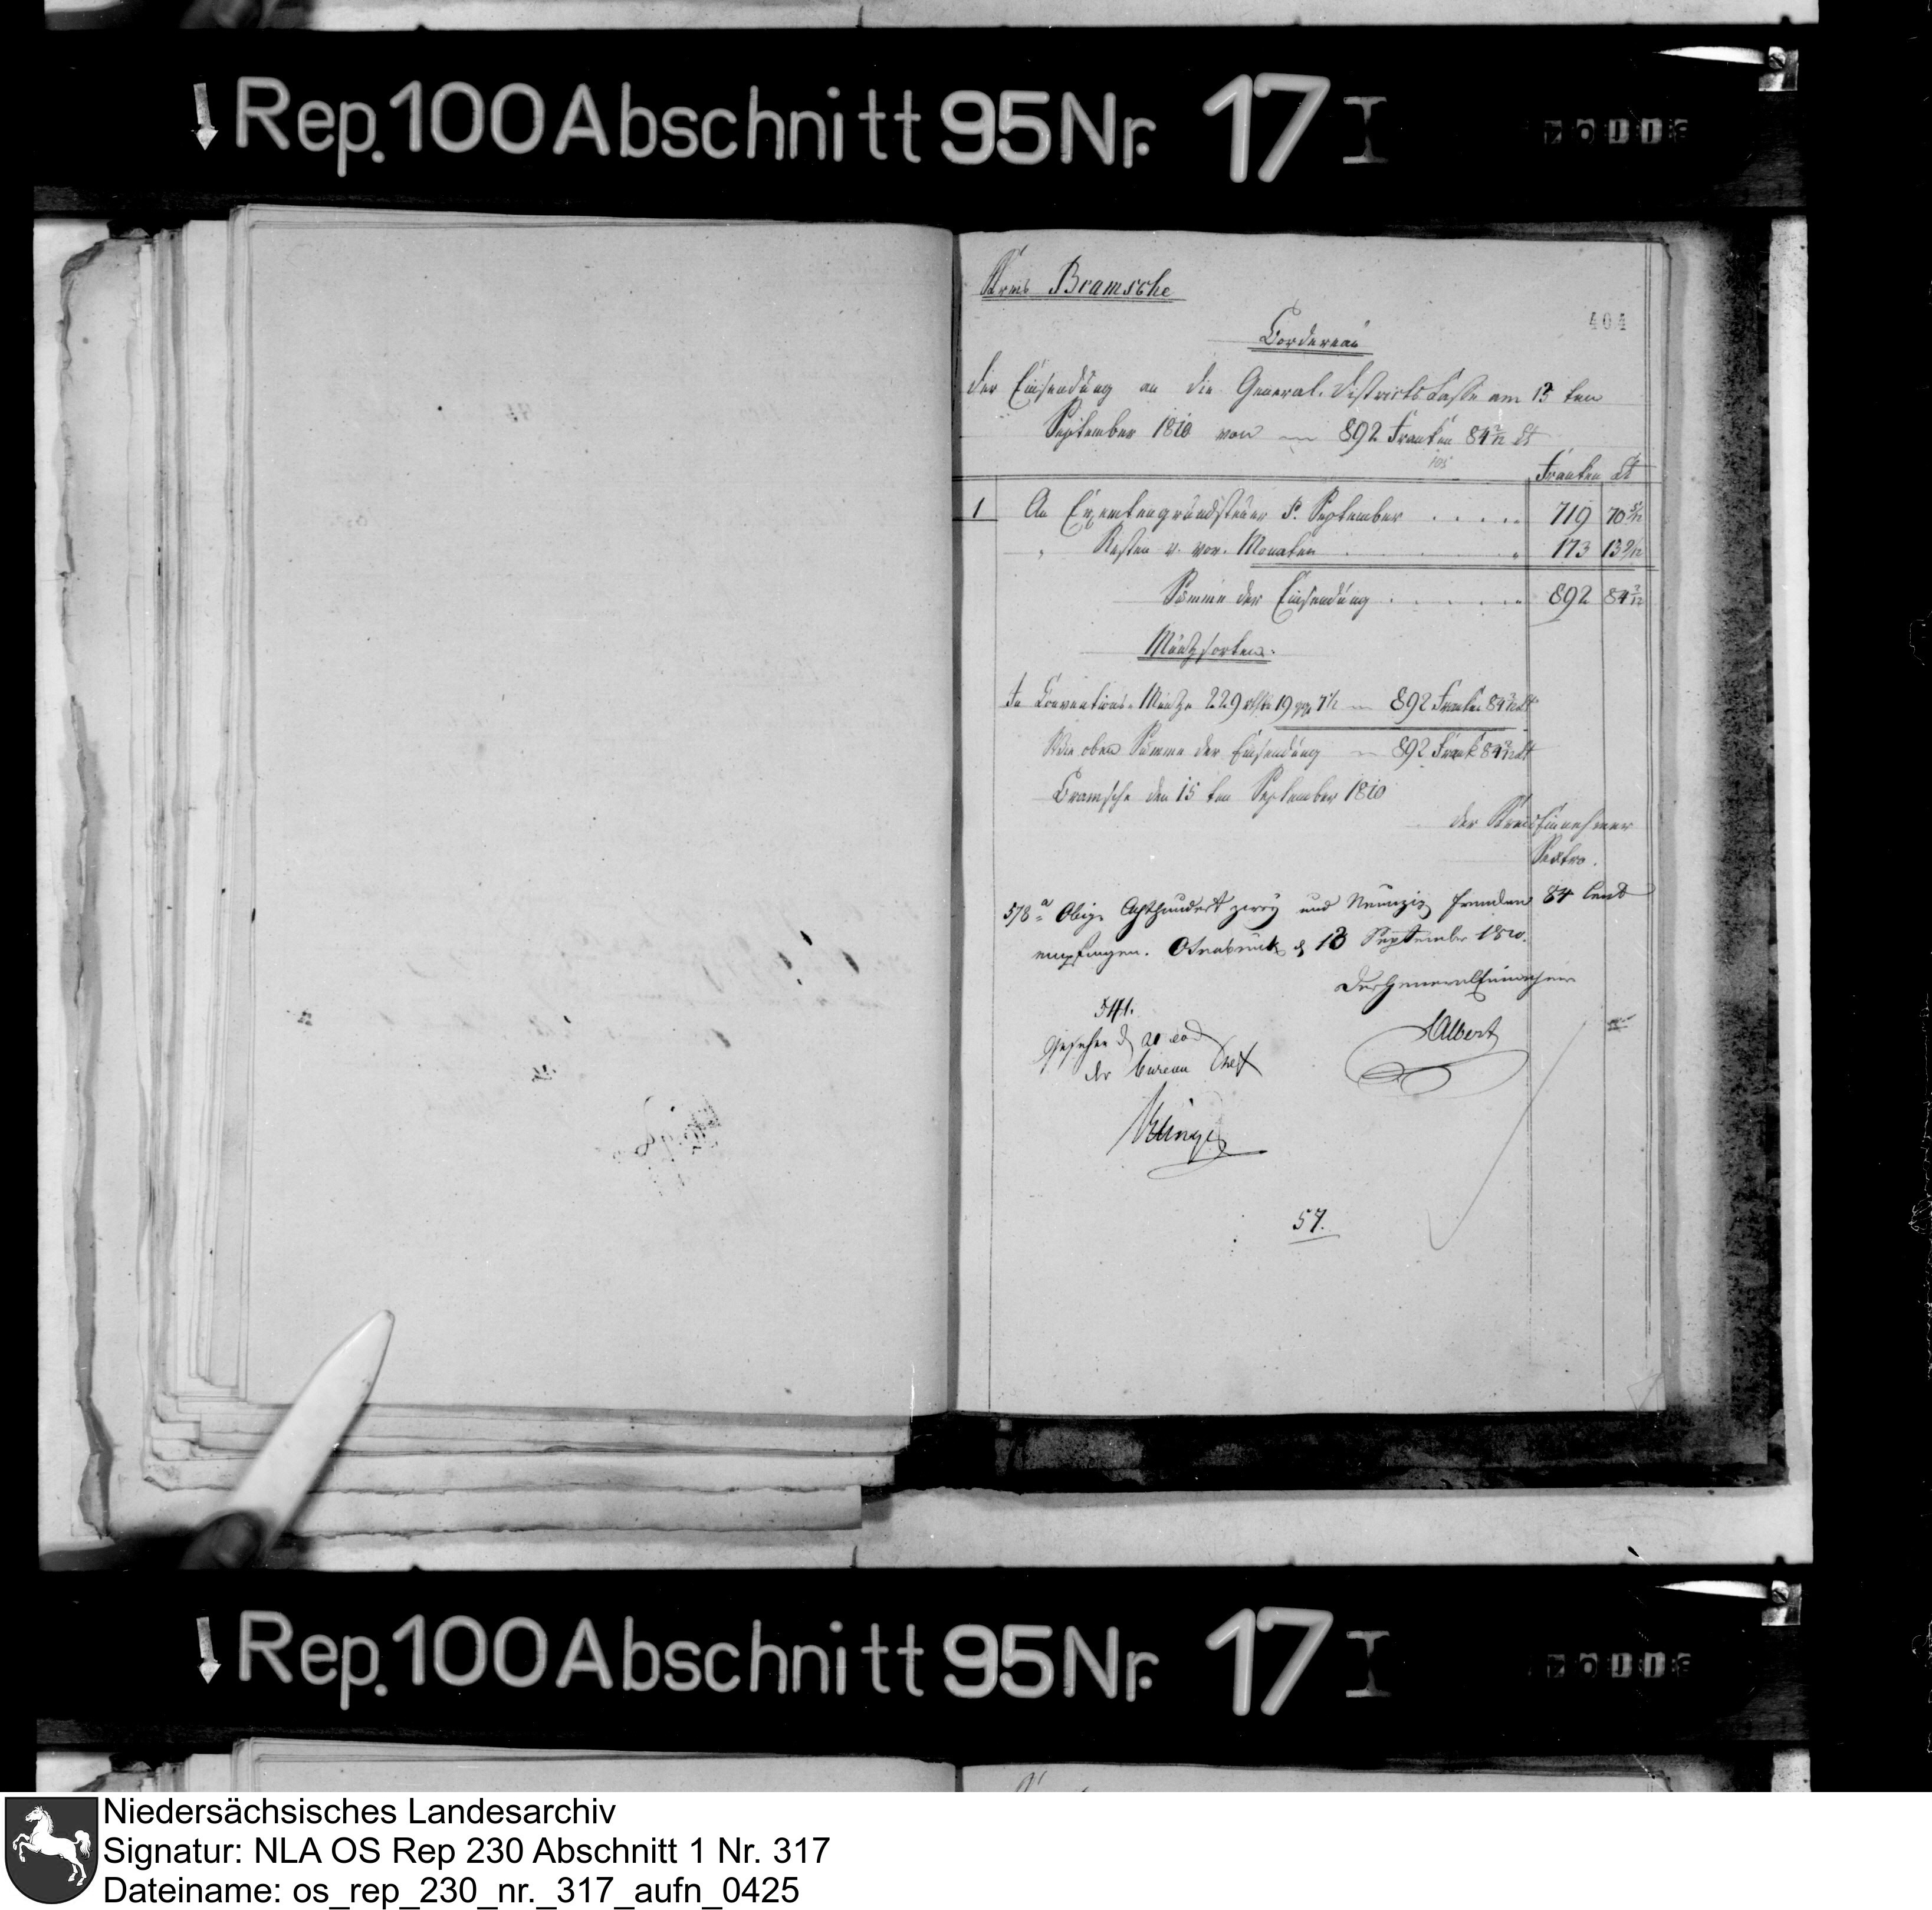 Rep. 100 Abschnitt 95 Nr. 17 I
Kreis Bramsche
404
Bordereau
der Einsendung an die General-Districts Casse am 13 ten
September 1810 von — 892 Franken 84 2/12 Ct
Franken Ct
1 An Exemtengrundsteuer p. September . . . . . 719 70 5/12
" Resten v. vor. Monaten . . . . " 173 13 9/12
Summe der Einsendung . . . . . 892 84 2/12
Münzsorten.
In Conventions-Münze 229 19 7 1/2 — 892 Franken 84 2/12 Ct
Wie oben Summe der Einsendung — 892 Frank 84 2/12 Ct
Bramsche den 15 ten September 1810
der Kreis Einnehmer
Sextro.
578 a Obige Achthundert zwey und Neunzig Franken 84 Cent
empfangen. Osnabrück d 13 September 1810.
Der General Einnehmer
Albert
541.
Gesehen d 20 eod
der bureau Chef
57.
Rep. 100 Abschnitt 95 Nr. 17 I
Niedersächsisches Landesarchiv
Signatur: NLA OS Rep 230 Abschnitt 1 Nr. 317
Dateiname: os_rep_230_nr._317_aufn_0425